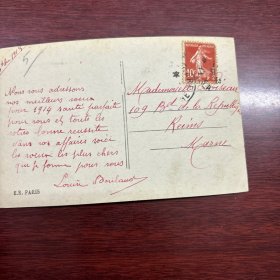 Nous vous adressons
nos meilleurs vœux
pour 1914 santé parfaite
pour vous et toute les
votre bonne reussite
dans vos affaires voici
les vœux les plus chers
que je forme pour vous
Louise
E.S. PARIS
10
Mademoiselle
109 Bd de la République
Reims
Marne